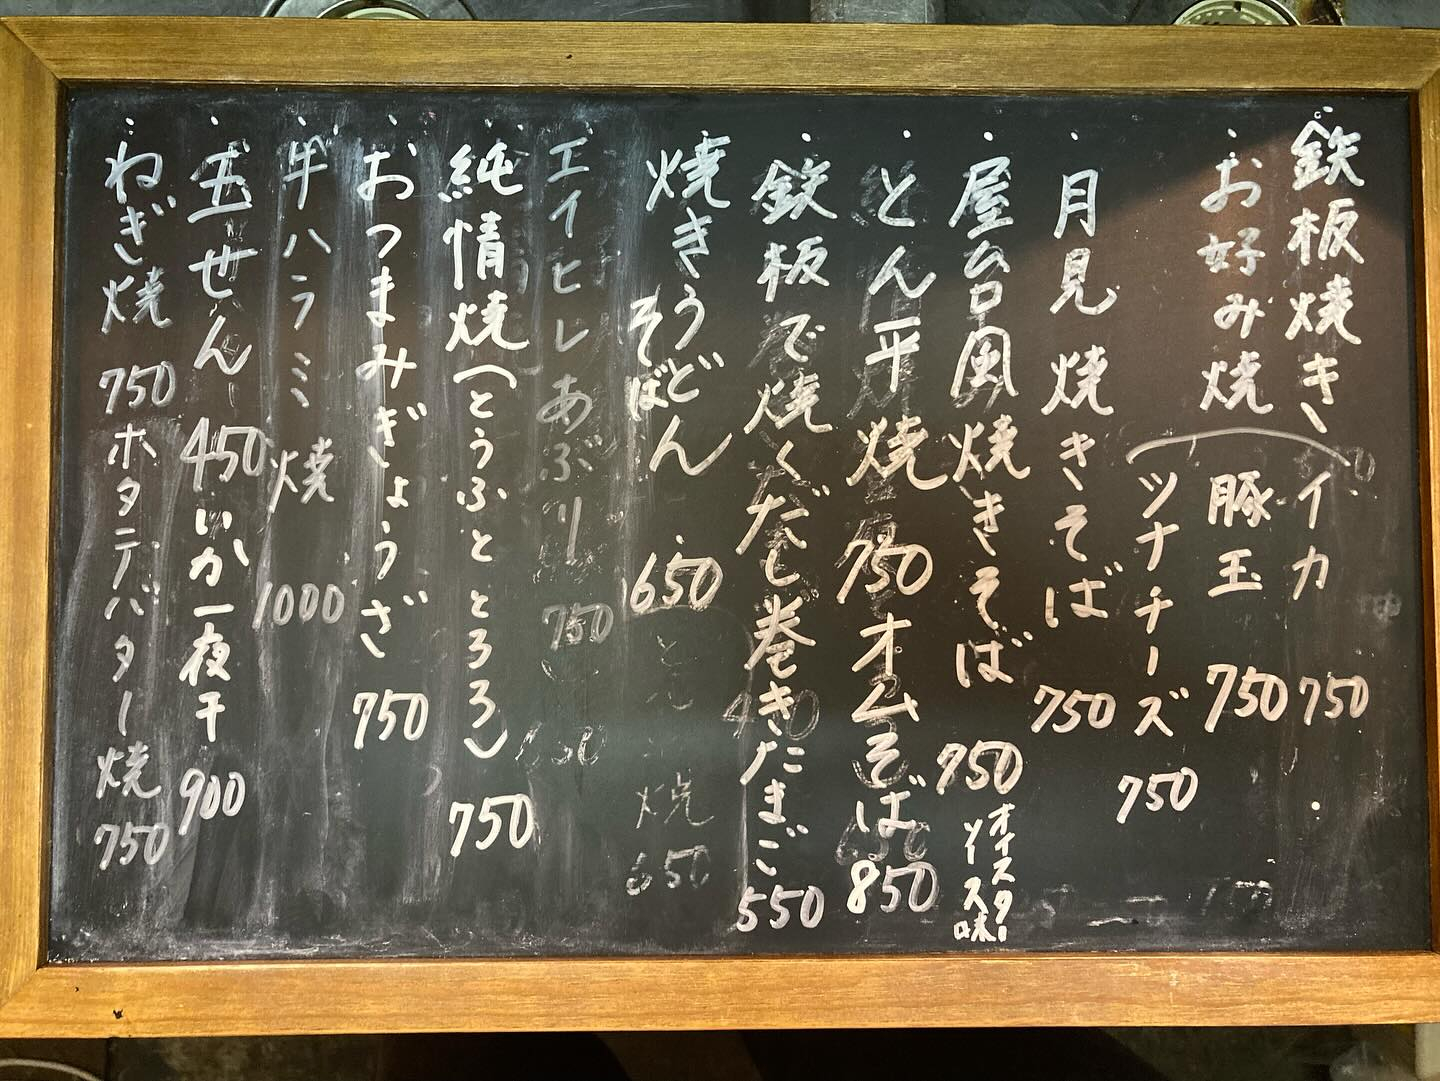 鉄板焼き
イカ 750
・お好み焼
豚玉 750
ツナチーズ 750
・月見焼きそば 750
・屋台風焼きそば 750
オイスター
ソース味
・とん平焼 750 オムそば 850
・鉄板で焼くだし巻きたまご 550
・焼きうどん
そば
・650
焼 650
・エイヒレあぶり 750
・純情焼(とうふととろろ) 750
・おつまみぎょうざ 750
・牛ハラミ焼 1000
・玉せん 450 いか一夜干 900
・ねぎ焼 750 ホタテバター焼 750